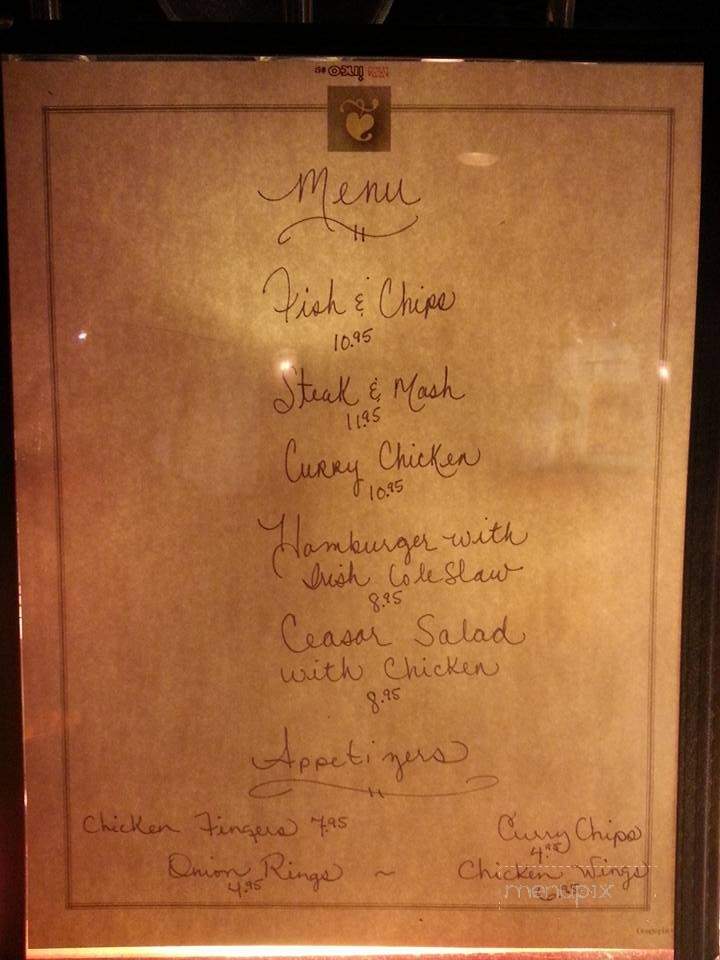 Menu
Fish & Chips
10.95
Steak & Mash
11.95
Curry Chicken
10.95
Hamburger with
Irish Cole Slaw
8.95
Ceasar Salad
with Chicken
8.95
Appetizers
Chicken Fingers 7.95
Curry Chips
4.95
Onion Rings ~ Chicken Wings
4.95
menupix